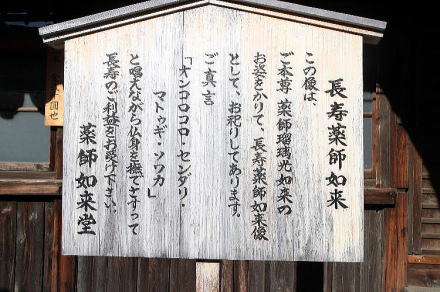 長寿薬師如来
この像は、
ご本尊 薬師瑠璃光如来の
お姿をかりて、長寿薬師如来像
として、お祀りしてあります。
ご真言
「オンコロコロ・センダリ・
マトゥギ・ソワカ」
と唱えながら仏身を撫でさすって
長寿のご利益をお受け下さい。
薬師如来堂
円也